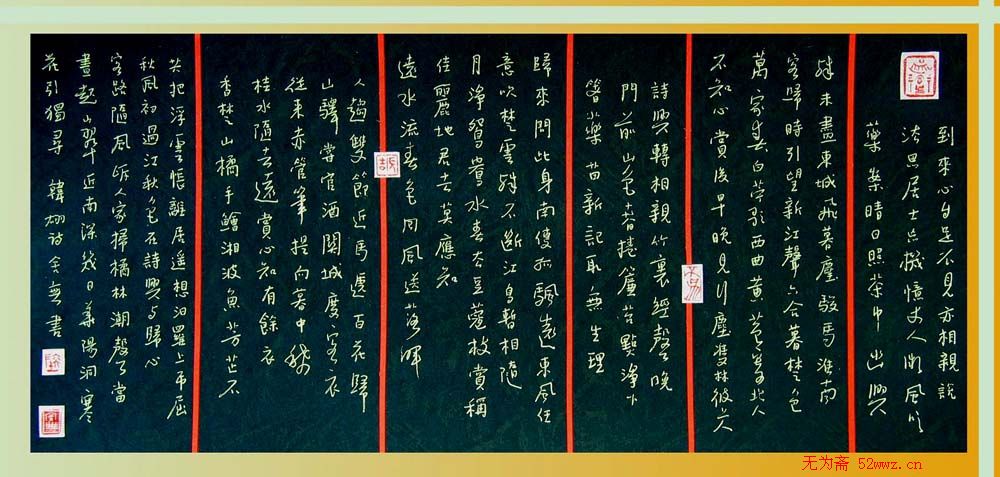 到來心自足不見亦相親說
法思居士忘機憶丈人微風吹
藥案晴日照茶巾幽興
殊未盡東城飛暮塵駿馬淮南
客歸時引望新江聲六合暮楚色
萬家春白苧歌西曲黃苞寄北人
不知心賞後早晚見行塵雙林彼上人
詩興轉相親竹裏經聲晚
門前山色春捲簾苔點淨下
箸藥苗新記取無生理
歸來問此身南使孤帆遠東風任
意吹楚雲殊不斷江鳥暫相隨
月淨鴛鴦水春生豆蔻枝賞稱
佳麗地君去莫應知
遠水流春色回風送落暉
人趨雙節近馬遞百花歸
山驛嘗官酒關城度客衣
從來赤管筆提向暮中稀
桂水隨去遠賞心知有餘衣
香楚山橘手鱠湘波魚芳芷不
共把浮雲悵離居遙想汨羅上弔屈
秋風初過江秋色在詩興與歸心
客路隨楓岸人家掃橘林潮聲當
晝起山翠近南深幾日華陽洞寒
花引獨尋 韓翃詩 無書
无为斋 52wwz.cn